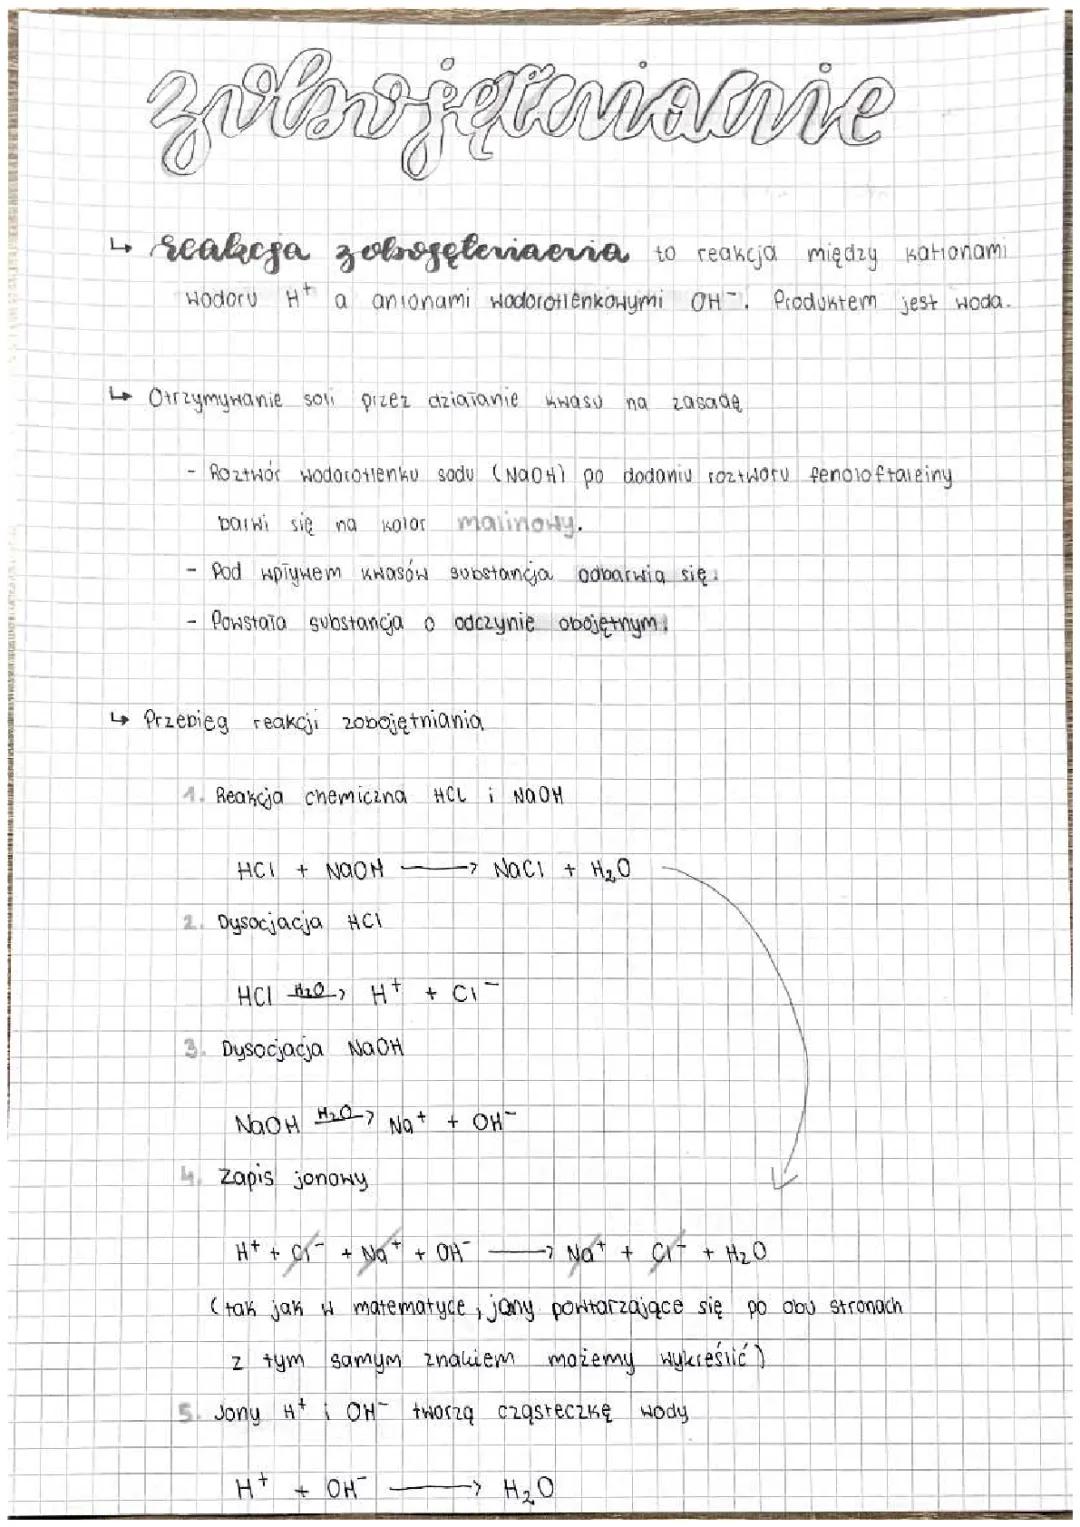 zobojętnianie
↳ reakcja zobojętniania to reakcja między kationami
wodoru H⁺ a anionami wodorotlenkowymi OH⁻. Produktem jest woda.
↳ Otrzymywanie soli przez działanie kwasu na zasadę
- Roztwór wodorotlenku sodu (NaOH) po dodaniu roztworu fenoloftaleiny
barwi się na kolor malinowy.
- Pod wpływem kwasów substancja odbarwia się.
- Powstała substancja o odczynie obojętnym.
↳ Przebieg reakcji zobojętniania
1. Reakcja chemiczna HCl i NaOH
HCl + NaOH ⟶ NaCl + H₂O
2. Dysocjacja HCl
HCl –H₂O→ H⁺ + Cl⁻
3. Dysocjacja NaOH
NaOH –H₂O→ Na⁺ + OH⁻
4. Zapis jonowy
H⁺ + Cl⁻ + Na⁺ + OH⁻ ⟶ Na⁺ + Cl⁻ + H₂O
(tak jak w matematyce, jony powtarzające się po obu stronach
z tym samym znakiem możemy wykreślić)
5. Jony H⁺ i OH⁻ tworzą cząsteczkę wody
H⁺ + OH⁻ ⟶ H₂O